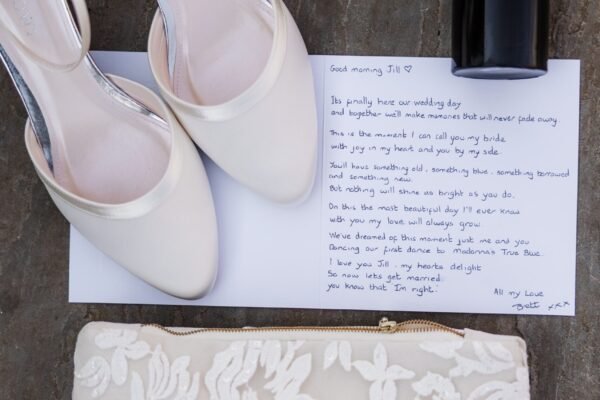 Good morning Jill ♡
Its finally here our wedding day
and together we'll make memories that will never fade away.
This is the moment I can call you my bride
with joy in my heart and you by my side.
You'll have something old, something blue, something borrowed
and something new.
But nothing will shine as bright as you do.
On this the most beautiful day I'll ever know
with you my love will always grow.
We've dreamed of this moment just me and you
Dancing our first dance to Madonna's True Blue.
I love you Jill, my hearts delight
So now lets get married
you know that I'm right!
All my Love
xxx